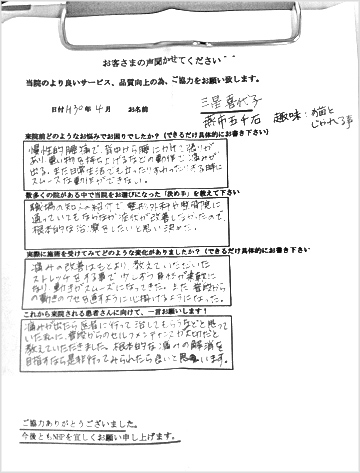 お客さまの声聞かせてください
当院のより良いサービス、品質向上の為、ご協力をお願い致します。
日付 H30年 4月 お名前
趣味：お猫と
じゃれる事
来院前どのようなお悩みでお困りでしたか？（できるだけ具体的にお書き下さい）
慢性的腰痛で、背中から腰にかけて張りが
あり、重い物を持ち上げるなどの動作で痛みが
出る。また日常生活でも立ったりすわったりする時に
スムーズな動作ができない。
数多くの院がある中で当院をお選びになった「決め手」を教えて下さい
職場の知人の紹介で 整形外科や
通っていてもなかなか症状が改善しなかったので、
根本的な治療をしたいと思い決めた。
実際に施術を受けてみてどのような変化がありましたか？（できるだけ具体的にお書き下さい）
痛みの改善はもとより、教えていただいた
ストレッチをする事で 身体が柔軟に
なり、動きがスムーズになってきた。また 普段から
の動きのクセを直すように心掛けるようになった。
これから来院される患者さんに向けて、一言お願いします！
痛みが出たら医者に行って治してもらうなどと思って
いたのに、普段からのセルフメンテナンスが大切だと
教えていただきました。根本的な痛みの解消を
目指すなら是非行ってみられたら良いと思います。
ご協力ありがとうございました。
今後ともNHPを宜しくお願い申し上げます。